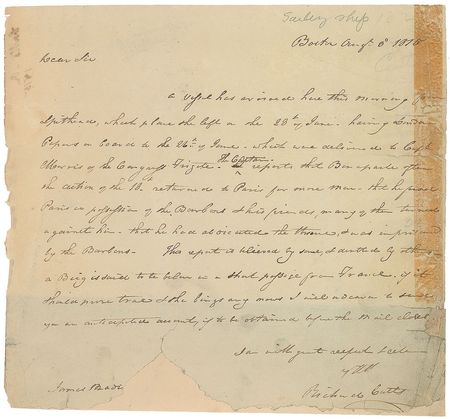 Boston Augt. 6th 1815
Dear Sir
a vessel has arrived here this morning from
Spithead, which place she left on the 28th of June. having London
Papers on board to the 26th of June. which were delivered to Capt
Morris of the Congress Frigate. The Captain reports that Bonaparte after
the action of the 18. returned to Paris for more men. that he found
Paris in possession of the Bourbons & his friends, many of them turned
against him. that he had abdicated the throne, & was imprisoned
by the Bourbons. This report is believed by some, & doubted by others
a Brig is said to be below in a short passage from France, if it
should prove true & she brings any news I will endeavor to send
you an anticipated account, if to be obtained before the mail closes
I am with great respect & esteem
Richard Cutts
James Madi